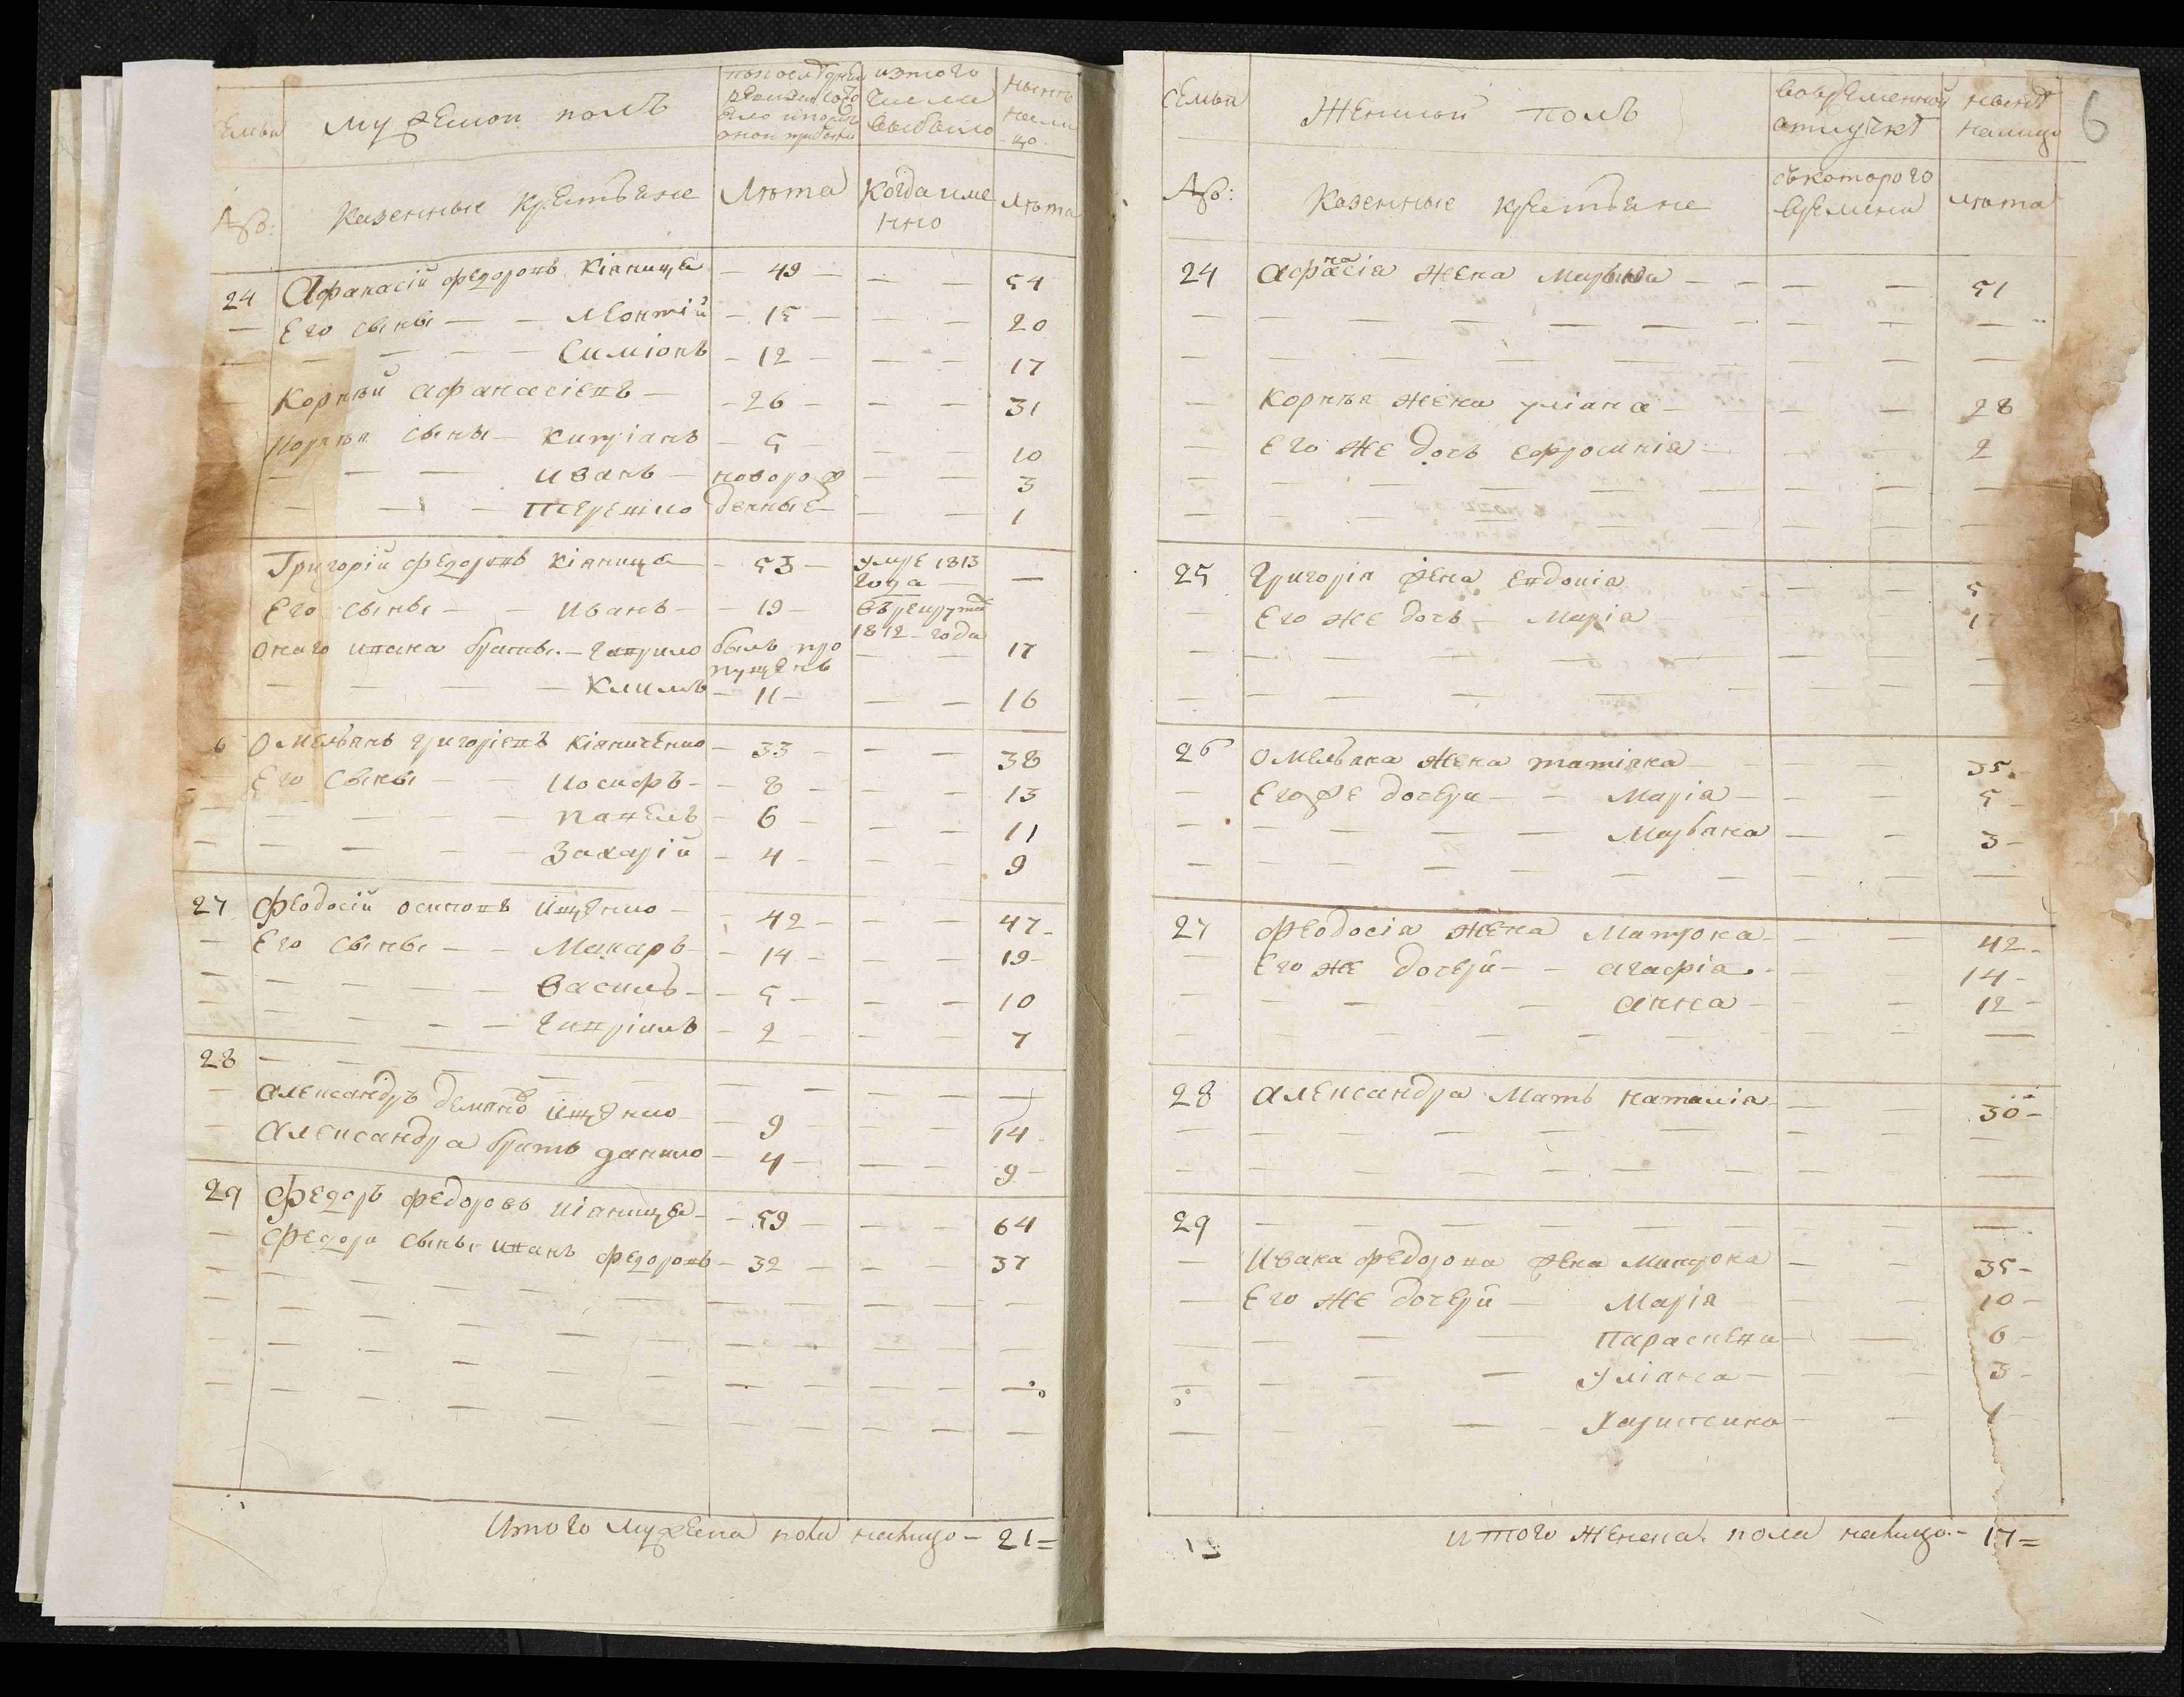 Семьи Мужескои полъ
по последней ревизии состояло и после оной прибыло
изтого числа выбыло
ныне налицо
№: Казенные Крестьяне Лѣта Когда имено Лѣта
24 Афанасій Федоровъ Кіяница — 49 — — — 54
Его сыны — — Леонтій — 15 — — — 20
— — — Симіонъ — 12 — — — 17
Корнѣй Афанасіевъ — — 26 — — — 31
Корнѣя сыны — Кипріанъ — 5 — — — 10
— — — Иванъ — новорож — — 3
— — — денные — — — 1
Григорій Федоровъ Кіяница — — 53 — умре 1813 года — —
Его сыны — — Иванъ — — 19 — въ рекруты 1812 года
Онаго Ивана братья — Гаврило былъ пропущенъ — — 17
— — — — Климъ — 11 — — — 16
6 Омельянъ Григоріевъ Кіяниченко — 33 — — — 38
Его сыны — — Иосифъ — — 8 — — — 13
— — — — Павелъ — 6 — — — 11
— — — — Захарій — 4 — — — 9
27 Феодосій Осиповъ Ищенко — — 42 — — — 47 —
Его сыны — — Макаръ — — 14 — — — 19 —
— — — — Василь — — 5 — — — 10
— — — — Гавріилъ — 2 — — — 7
28 — — — — — —
Александръ Демяновъ Ищенко — 9 — — 14 —
Александра братъ Данило — 4 — — — 9 —
29 Федоръ Федоровъ Кіяница — — 59 — — — 64
Федора сынъ Иванъ Федоровъ — 32 — — — 37
Итого мужеска пола налицо — 21 =
6
Семьи Женский полъ
вовременной отлучке
ныне налицо
№: Казенные Крестьяне
съкоторого времени
лѣта
24 Афанасія жена Марьина — — — — 51
Корнѣя жена Уліана — — — 28
Его же дочь Ефросинія — — — 2
25 Григорія жена Евдокія — — 5
Его же дочь — Марія 1
26 Омельяна жена Татіяна — — — 35 —
Его же дочери — — Марія — — 5 —
— — — — Марьяна — — 3 —
27 Феодосія жена Матрона — — — 42 —
Его же дочери — — Агафія — — 14 —
— — — — Анна — — — 12 —
28 Александра мать Наталія — — — 30 —
29 — — — — — —
Ивана Федорова жена Матрона — — 35 —
Его же дочери — Марія — — 10 —
— — — Параскева — — 6 —
— — — Уліяна — — — 3 —
— — — Харитина — — 1 —
итого женска пола налицо — 17 =